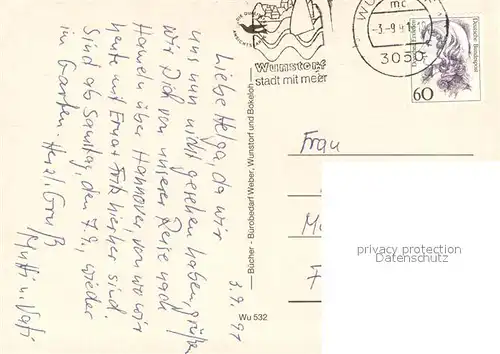 3.9.91
Liebe Helga, da wir
uns nun nicht gesehen haben, grüßen
wir Dich von unserer Reise nach
Hameln über Hannover, von wo wir
heute mit Erna + Fritz hierher sind.
Sind ab Samstag, den 7.9., wieder
im Garten. Herzl. Gruß
Mutti u. Vati
Wunstorf
stadt mit meer
WUNSTORF
mc
-3.-9.91
3050
Deutsche Bundespost
60
Bücher - Bürobedarf Weber, Wunstorf und Bokeloh
Wu 532
Frau
M
7
privacy protection
Datenschutz